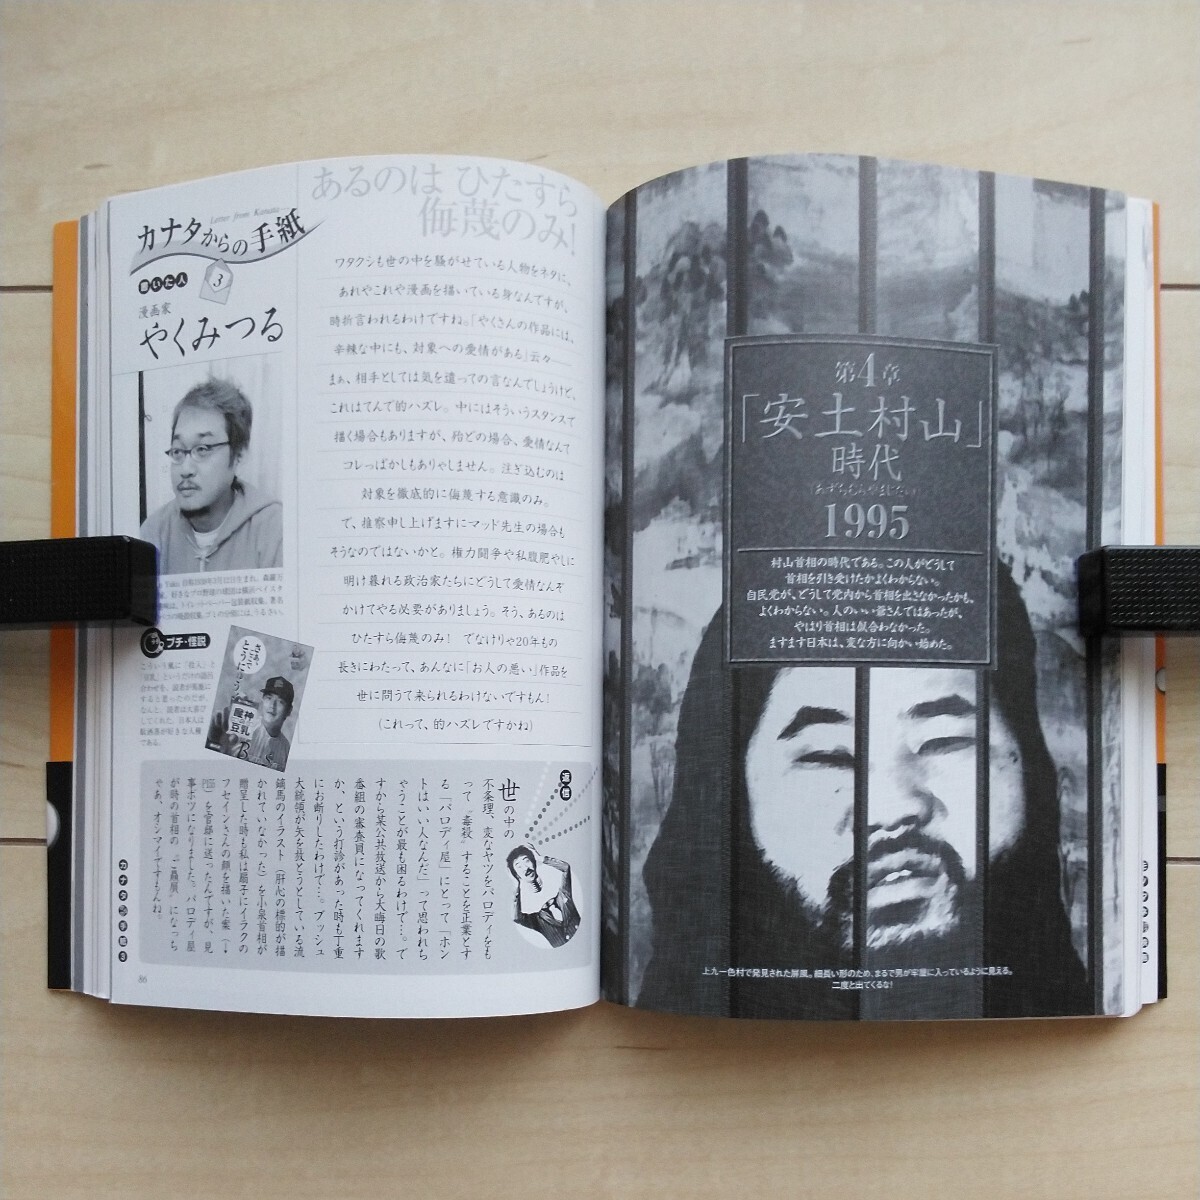 あるのは ひたすら
侮蔑のみ！
Letter from Kanata
カナタからの手紙
書いた人
3
漫画家
やくみつる
ワタクシも世の中を騒がせている人物をネタに、
あれやこれや漫画を描いている身なんですが、
時折言われるわけですね。「やくさんの作品には、
辛辣な中にも、対象への愛情がある」云々——
まぁ、相手としては気を遣っての言なんでしょうけど、
これはてんで的ハズレ。中にはそういうスタンスで
描く場合もありますが、殆どの場合、愛情なんて
コレっぱかしもありゃしません。注ぎ込むのは
対象を徹底的に侮蔑する意識のみ。
で、推察申し上げますにマッド先生の場合も
そうなのではないかと。権力闘争や私腹肥やしに
明け暮れる政治家たちにどうして愛情なんぞ
かけてやる必要がありましょう。そう、あるのは
ひたすら侮蔑のみ！ でなけりゃ20年もの
長きにわたって、あんなに「お人の悪い」作品を
世に問うて来られるわけないですもん！
（これって、的ハズレですかね）
プチ・怪説
こういう風に「役人」と
「豆乳」というだけの語呂
合わせを、読者が馬鹿に
すると思ったのだが、
なんと、読者は大喜び
してくれた。日本人は
駄洒落が好きな人種
である。
返信
世の中の
不条理、変なヤツをパロディをも
って〝毒殺〟することを正業とす
る「パロディ屋」にとって「ホン
トはいい人なんだ」って思われち
ゃうことが最も困るわけで…。で
すから某公共放送から大晦日の歌
番組の審査員になってくれます
か、という打診があった時も丁重
にお断りしたわけで…。ブッシュ
大統領が矢を放とうとしている流
鏑馬のイラスト（肝心の標的が描
かれていなかった）を小泉首相が
贈呈した時も私は扇子にイラクの
フセインさんの顔を描いた案（↓
P155）を官邸に送ったんですが、見
事ボツになりました。パロディ屋
が時の首相の〝贔屓〟になっち
ゃあ、オシマイですもんね。
カナタの手紙 3
86
第4章
「安土村山」
時代
（あづちむらやまじだい）
1995
村山首相の時代である。この人がどうして
首相を引き受けたかよくわからない。
自民党が、どうして党内から首相を出さなかったかも、
よくわからない。人のいい爺さんではあったが、
やはり首相は似合わなかった。
ますます日本は、変な方に向かい始めた。
上九一色村で発見された屏風。細長い形のため、まるで男が牢屋に入っているように見える。
二度と出てくるな！